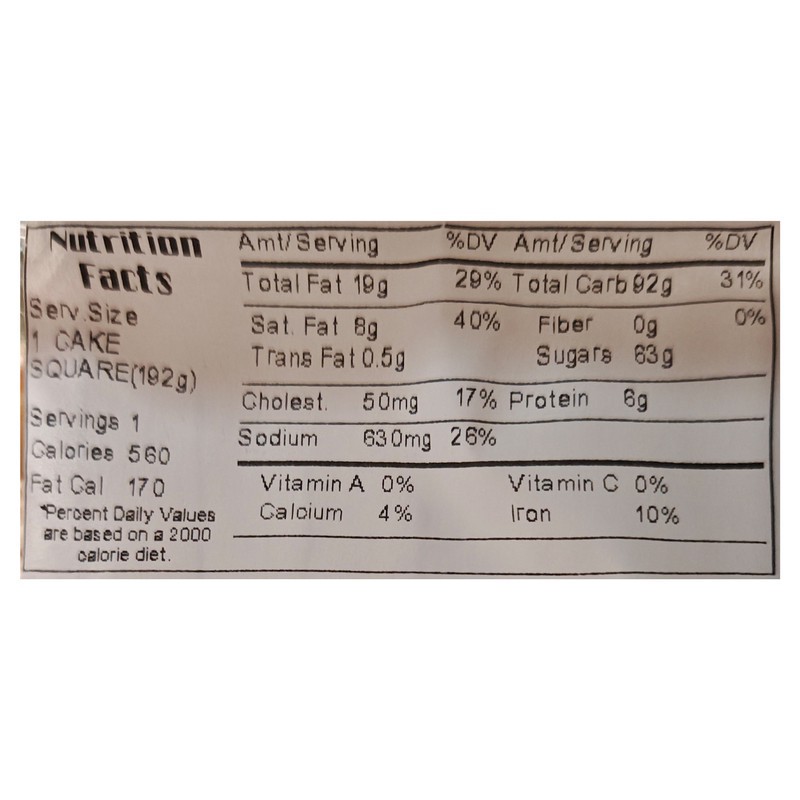 Nutrition
Facts
Serv.Size
1 CAKE
SQUARE(192g)
Servings 1
Calories 560
Fat Cal 170
*Percent Daily Values
are based on a 2000
calorie diet.
Amt/Serving %DV Amt/Serving %DV
Total Fat 19g 29% Total Carb 92g 31%
Sat. Fat 8g 40% Fiber 0g 0%
Trans Fat 0.5g Sugars 63g
Cholest. 50mg 17% Protein 6g
Sodium 630mg 26%
Vitamin A 0% Vitamin C 0%
Calcium 4% Iron 10%